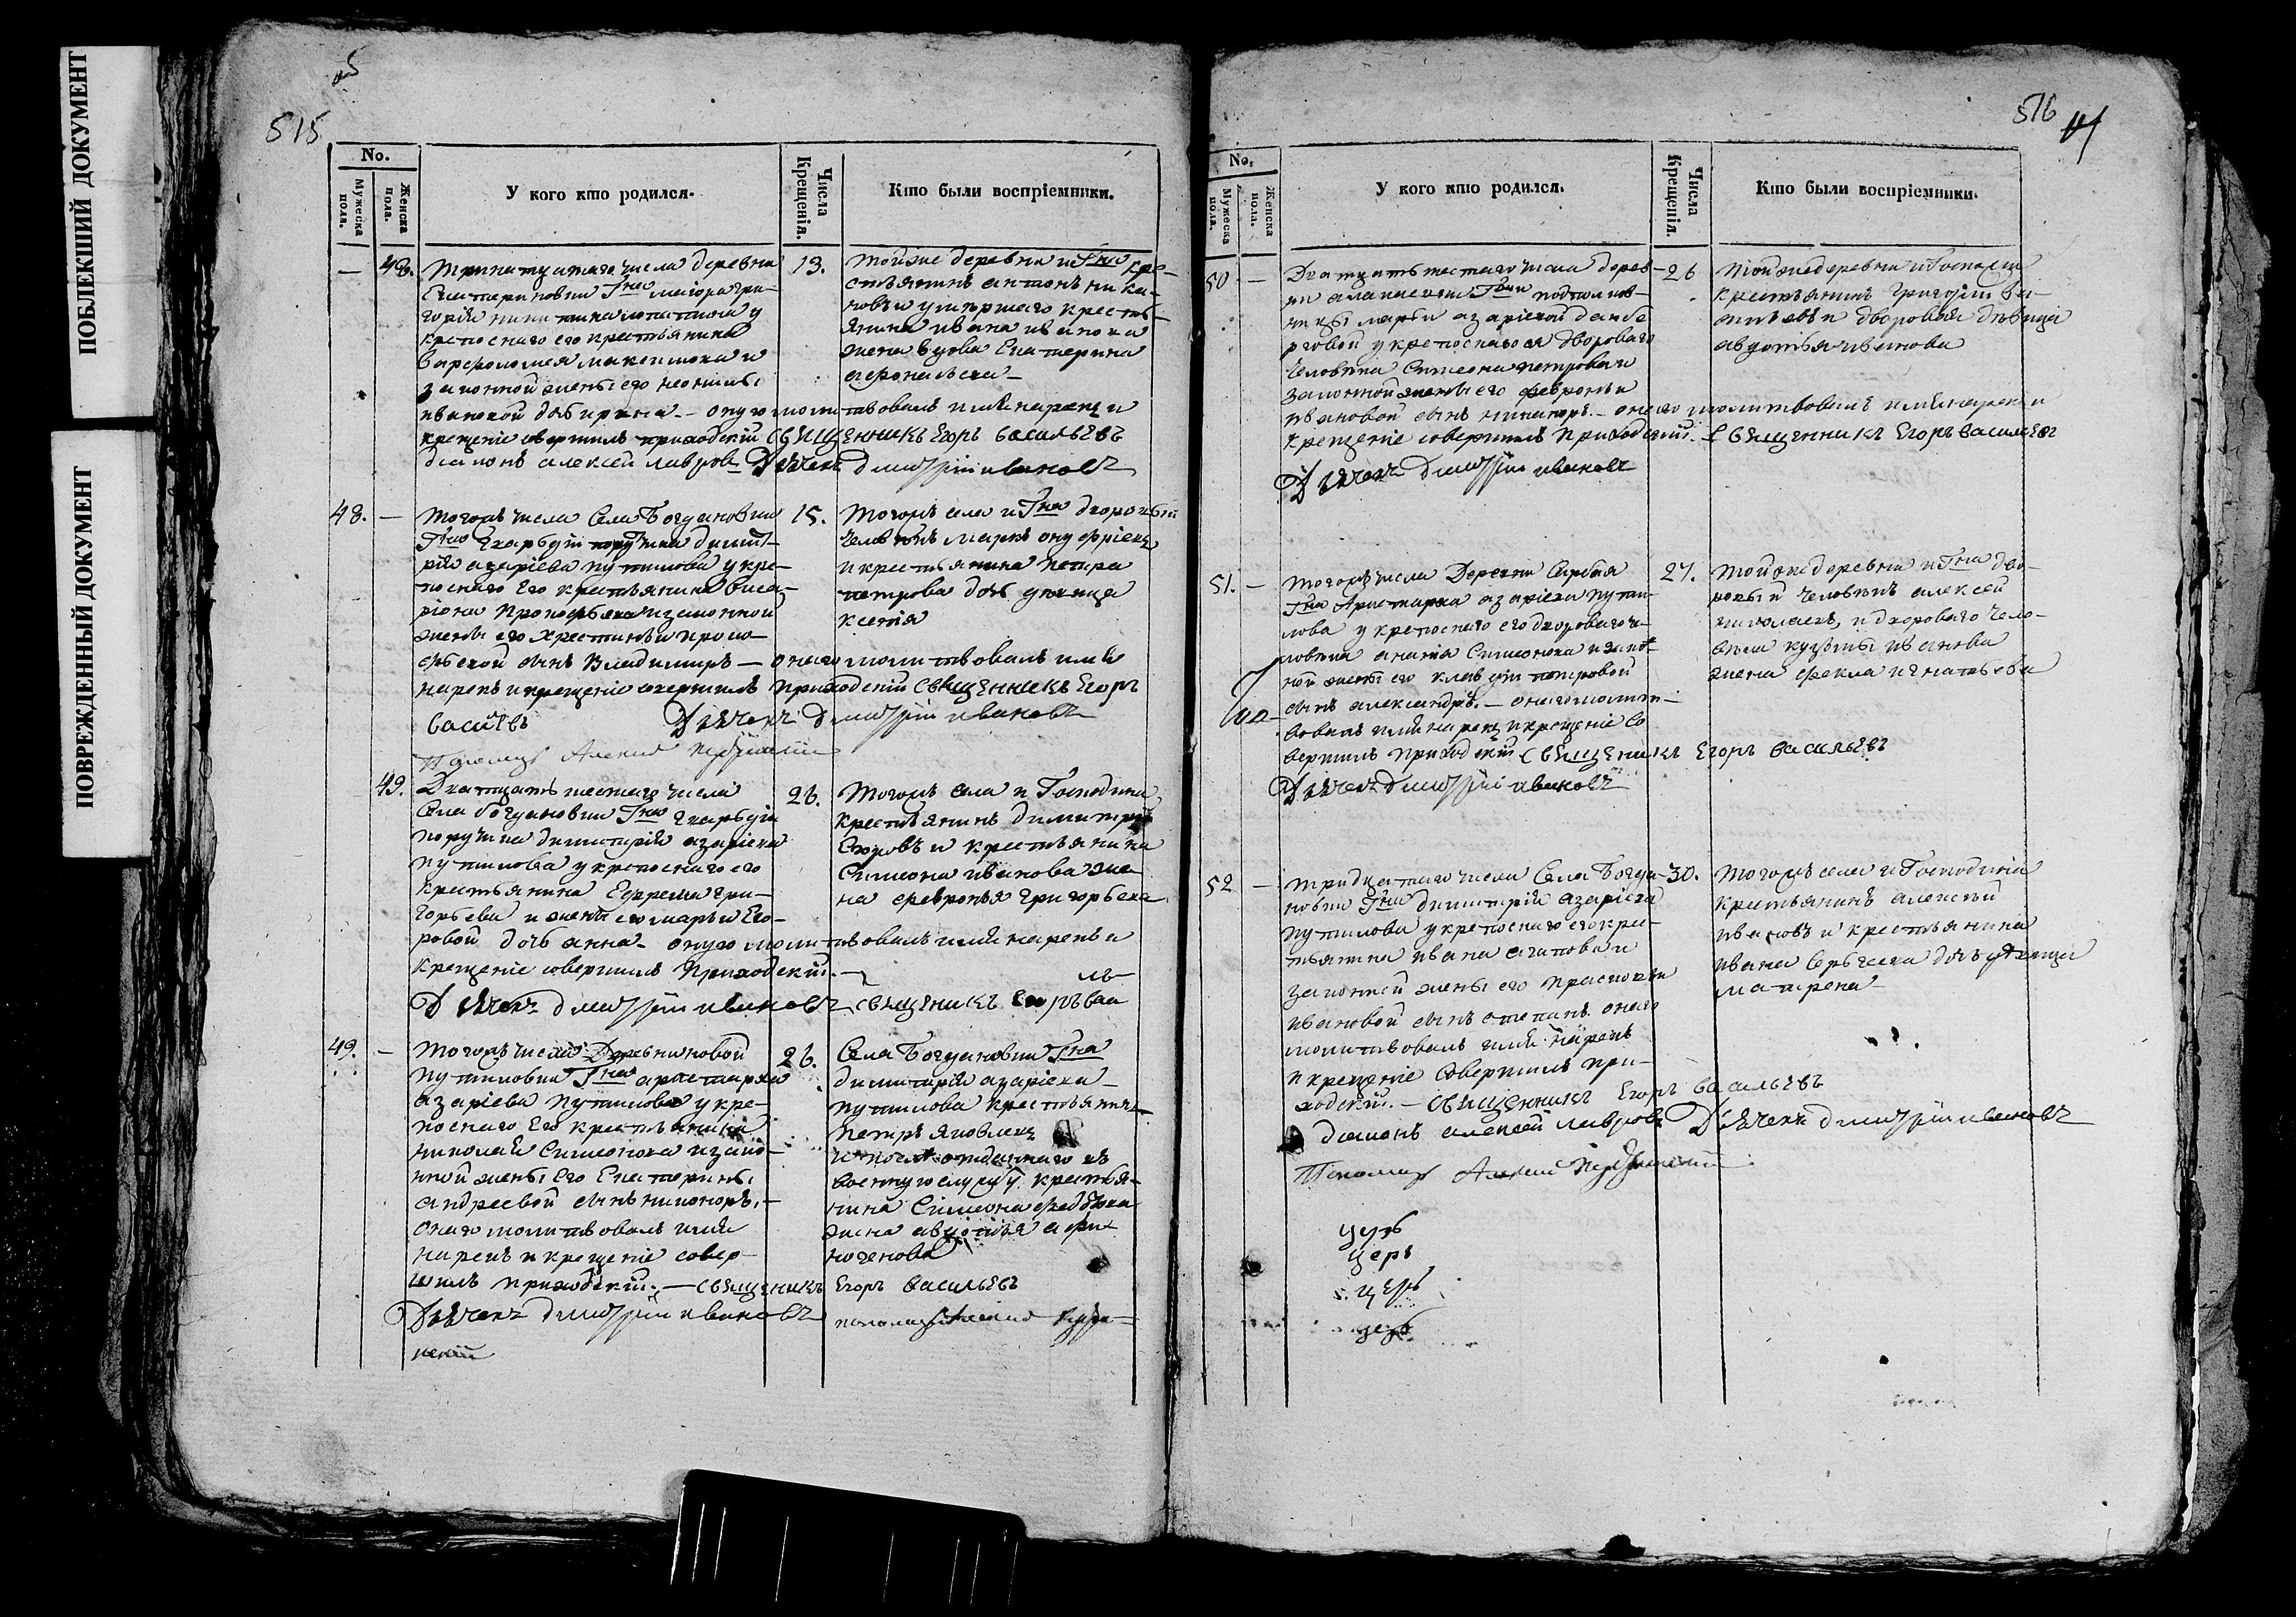 ПОБЛЕКШИЙ ДОКУМЕНТ
ПОВРЕЖДЕННЫЙ ДОКУМЕНТ
515
No.
Мужеска пола.
Женска пола.
У кого кто родился.
Числа Крещенія.
Кто были воспріемники.
— 48. Тринатцатаго числа деревни
Екатериновки Гна маіора Гри-
горія Никитина у
крепоснаго его крестьянина
Варфоломея Максимова и
законной жены его Неонилы
Ивановой дочь Ирина. — оную молитвовалъ имя нарекъ и
крещеніе совершилъ приходскій священникъ Егоръ Васильевъ
діаконъ Алексей Лавровъ Дьячекъ Димитрій Ивановъ
13. Тойже деревни и Гна кре-
стьянинъ Антонъ
новъ и умершаго кресть-
янина Ивана Иванова
жена вдова Екатерина
Афонасьева
48. — Тогожъ числа Села Богдановки
Гна Екарбуїи поручика Димит-
рія Азаріева Путилова у кре-
поснаго Его крестьянина Виса-
ріона Прокофьева и законной
жены его Христиньи Проко-
фьевой сынъ Владимиръ — онаго молитвовалъ имя
нарекъ и крещеніе совершилъ приходскій священникъ Егоръ
Васильевъ Дьячекъ Димитрій Ивановъ
Пономарь Алексей
15. Тогожъ села и Гна дворовый
человекъ Марко Онуфріевъ
и крестьянина Петра
Петрова дочь девица
Ксенія
49. Дватцать шестаго числа
Села Богдановки Гна Екарбуїи
поручика Димитрія Азаріева
Путилова у крепоснаго его
крестьянина Ефрема Гри-
горьева и жены его Марьи Его-
ровой дочь Анна — оную молитвовалъ имя нарекъ и
крещеніе совершилъ приходскій. —
Дьячекъ Димитрій Ивановъ священикъ Егоръ Ваа
26. Тогожъ села и Господина
крестьянинъ Димитрій
Егоровъ и крестьянина
Симеона Иванова же-
на Февронья Григорьева
49. — Тогожъ числа Деревни новой
Путиловки Гна Аристарха
Азаріева Путилова у кре-
поснаго Его крестьянина
Николая Симеонова и зако-
нной жены Его Екатерины
Андреевой сынъ Никоноръ. —
онаго молитвовалъ имя
нарекъ и крещеніе совер-
шилъ приходскій. — священикъ Егоръ Васильевъ
Дьячекъ Димитрій Ивановъ пономарь Алексей
26. Села Богдановки Гна
Димитрія Азаріева
Путилова крестьянинъ
Петръ Яковлевъ
и отданнаго въ
военную службу крестья-
нина Симеона
жена Авдотія Афи-
ногенова
516
No.
Мужеска пола.
Женска пола.
У кого кто родился.
Числа Крещенія.
Кто были воспріемники.
50 — Дватцать шестаго числа дерев-
ни Гжи подполков-
ницы Марьи Азаріевой
у крепоснаго ея дворового
человека Симеона Петрова и
законной жены его Февроньи
Ивановой сынъ Никаноръ. — онаго молитвовалъ имя нарекъ и
крещеніе совершилъ приходскій. — Священникъ Егоръ Васильевъ
Дьячекъ Димитрій Ивановъ
26 Тойже деревни и Госпожи
крестьянинъ Григорій
и дворовая девица
Авдотья Иванова
51. — Тогожъ числа Деревни
Гна Аристарха Азаріева Пути-
лова у крепоснаго его двороваго че-
ловека Ананія Симеонова и закон-
ной жены его Клавдіи Петровой
сынъ Александръ. — онаго молит-
вовалъ имя нарекъ и крещеніе со
вершилъ приходскій священикъ Егоръ Васильевъ
Дьячекъ Димитрій Ивановъ
27. Тойже деревни и Гна дво-
ровый человекъ Алексей
Николаевъ, и двороваго чело-
века Кузьмы Иванова
жена Фекла Игнатьева
52 — Тридцатаго числа Села Богда-
новки Гна Димитрія Азаріева
Путилова у крепоснаго его кре-
стьянина Ивана Агапова и
законной жены его Прасковьи
Ивановой сынъ Степанъ онаго
молитвовалъ имя нарекъ
и крещеніе совершилъ при-
ходскій. — священникъ Егоръ Васильевъ
діаконъ Алексей Лавровъ Дьячекъ Димитрій Ивановъ
Пономарь Алексей
30. Тогожъ села и Господина
крестьянинъ Алексей
Ивановъ и крестьянина
Ивана Сергеева дочь девица
Матрена